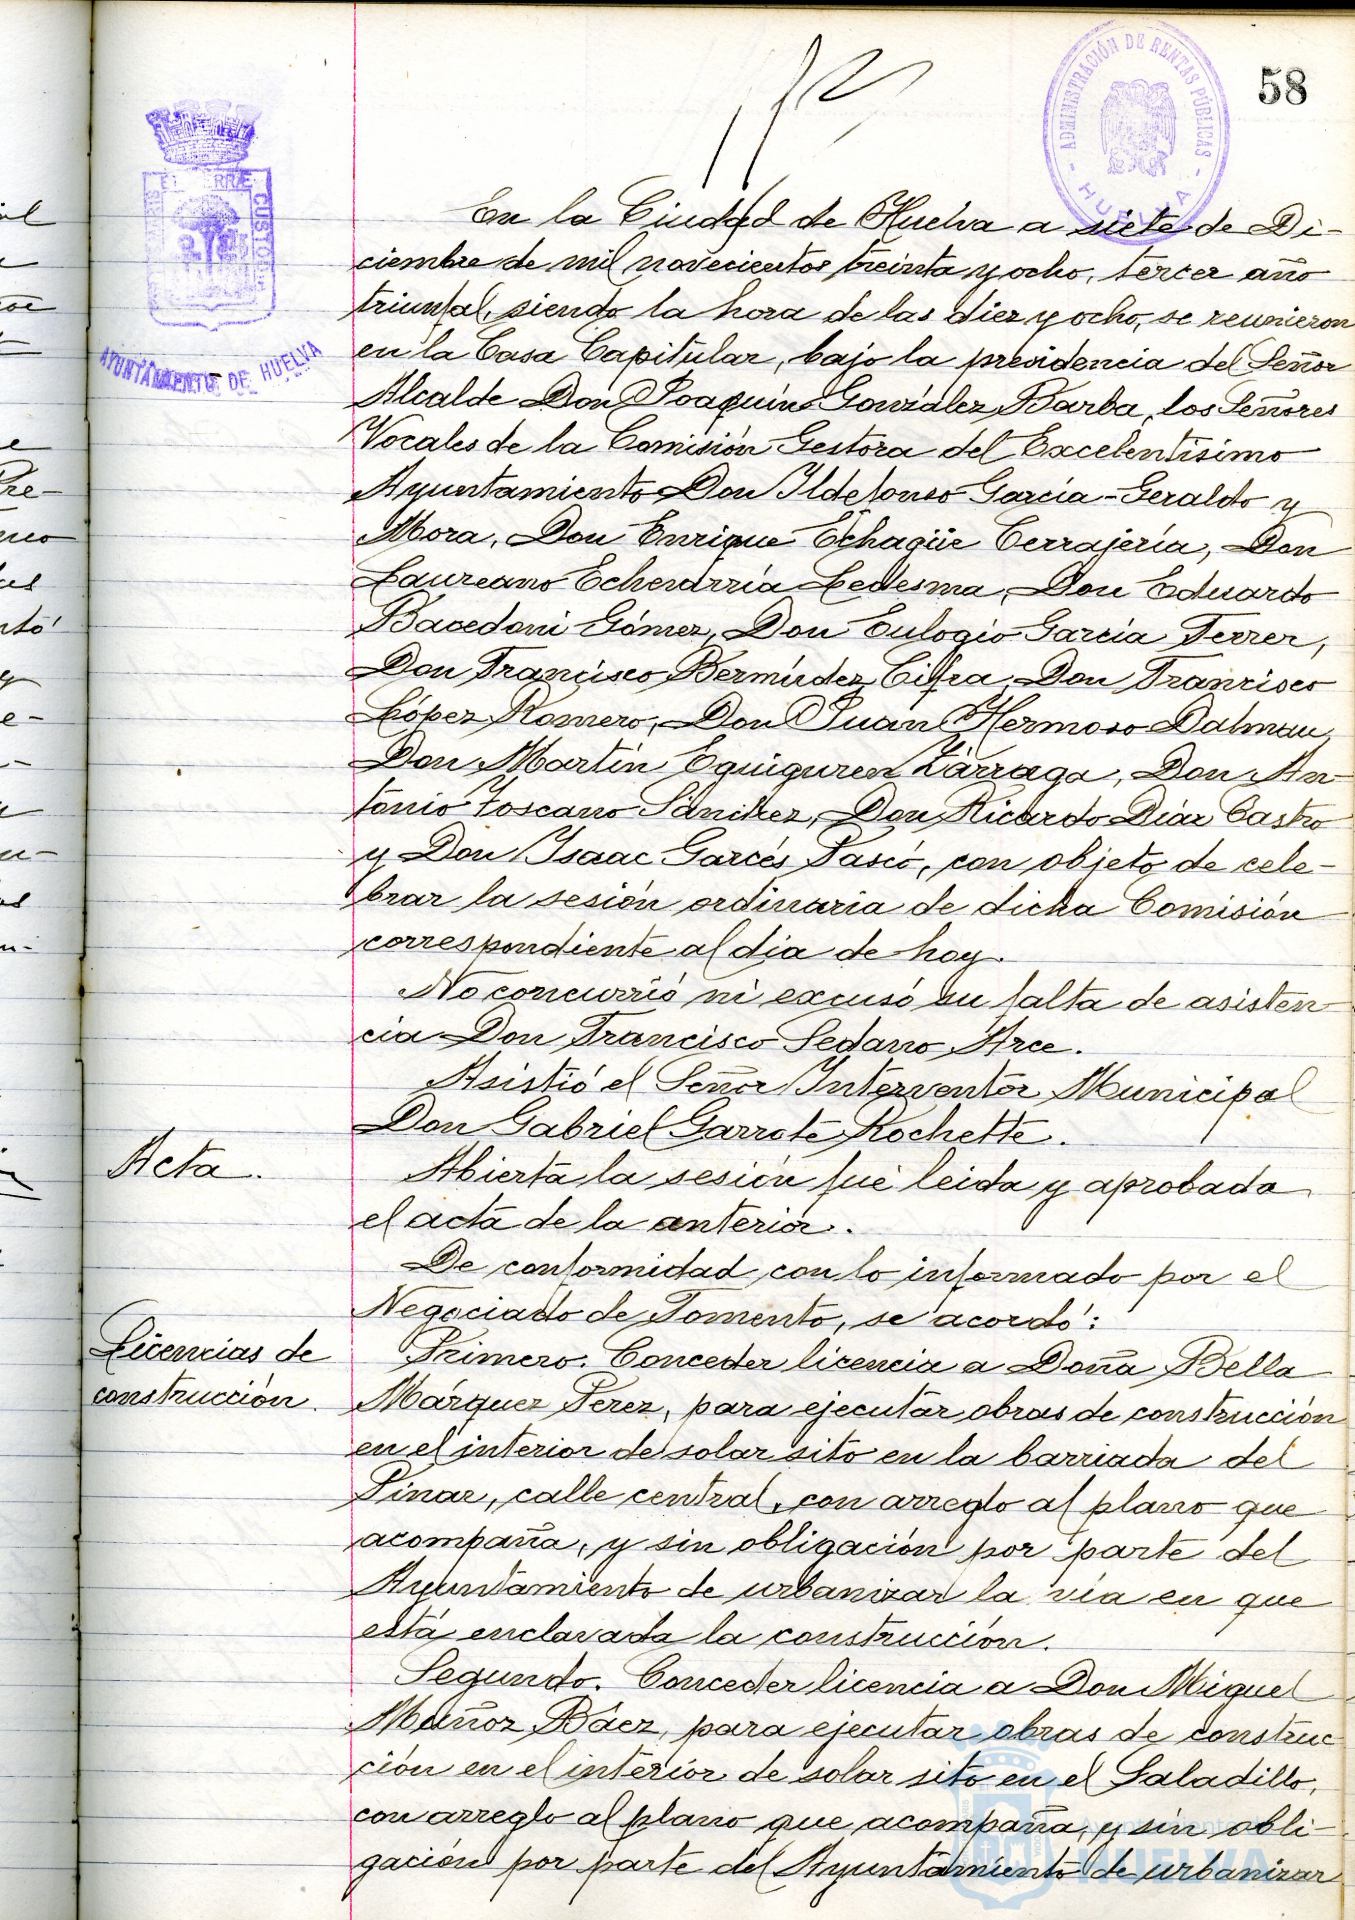 58
ADMINISTRACIÓN DE RENTAS PÚBLICAS
- HUELVA -
CUSTODIA
AYUNTAMIENTO DE HUELVA
En la Ciudad de Huelva a siete de Di-
ciembre de mil novecientos treinta y ocho, tercer año
triunfal, siendo la hora de las diez y ocho, se reunieron
en la Casa Capitular, bajo la presidencia del Señor
Alcalde Don Joaquín González Barba, los Señores
Vocales de la Comisión Gestora del Excelentísimo
Ayuntamiento Don Ildefonso García-Geraldo y
Mora, Don Enrique Echagüe Cerrajería, Don
Laureano Echevarría Ledesma, Don Eduardo
Bacedoni Gómez, Don Eulogio García Ferrer,
Don Francisco Bermúdez Cifra, Don Francisco
López Romero, Don Juan Hermoso Dalmau,
Don Martín Eguiguren Zárraga, Don An-
tonio Toscano Sánchez, Don Ricardo Díaz Castro
y Don Isaac Garcés Pascó, con objeto de cele-
brar la sesión ordinaria de dicha Comisión
correspondiente al dia de hoy.
No concurrió ni excusó su falta de asisten-
cia Don Francisco Sedano Arce.
Asistió el Señor Interventor Municipal
Don Gabriel Garrote Rochette.
Acta.
Abierta la sesión fué leida y aprobada
el acta de la anterior.
De conformidad con lo informado por el
Negociado de Fomento, se acordó:
Licencias de
construcción.
Primero. Conceder licencia a Doña Bella
Márquez Perez, para ejecutar obras de construcción
en el interior de solar sito en la barriada del
Pinar, calle central, con arreglo al plano que
acompaña, y sin obligación por parte del
Ayuntamiento de urbanizar la vía en que
está enclavada la construcción.
Segundo. Conceder licencia a Don Miguel
Muñoz Báez, para ejecutar obras de construc-
ción en el interior de solar sito en el Saladillo,
con arreglo al plano que acompaña, y sin obli-
gación por parte del Ayuntamiento de urbanizar
Ayuntamiento de
HUELVA